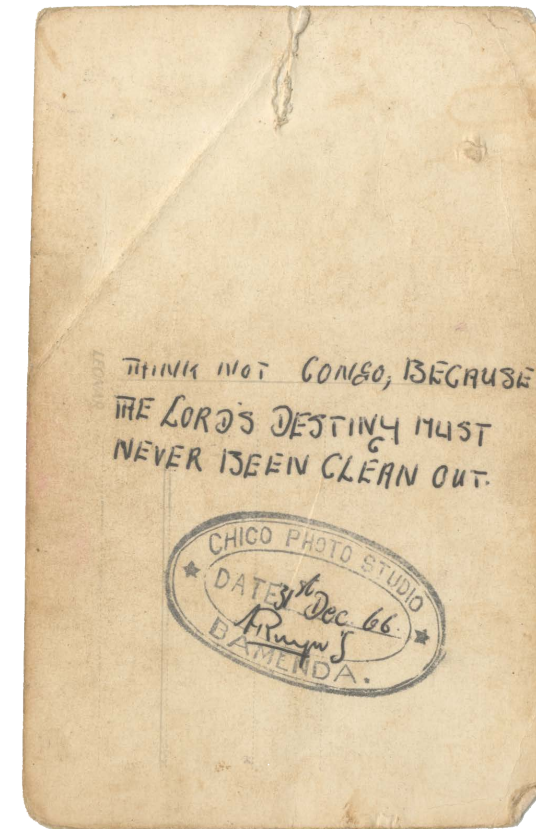 THINK NOT CONGO, BECAUSE
THE LORD'S DESTINY MUST
NEVER BEEN CLEAN OUT.
CHICO PHOTO STUDIO
DATE 31st Dec. 66.
BAMENDA.